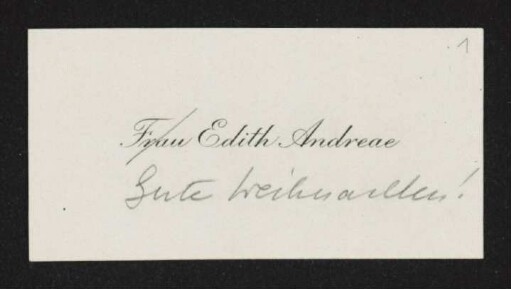 1
Frau Edith Andreae
Gute Weihnachten!